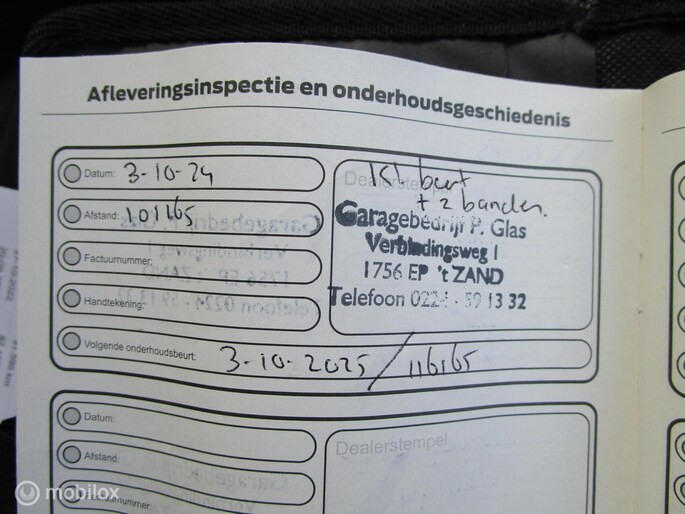 Afleveringsinspectie en onderhoudsgeschiedenis
Datum: 3-10-24
Afstand: 101165
Factuurnummer:
Handtekening:
Dealerstempel
Kl beurt
+ 2 banden.
Garagebedrijf P. Glas
Verbindingsweg 1
1756 EP 't ZAND
Telefoon 0224 - 59 13 32
Volgende onderhoudsbeurt: 3-10-2025 / 116165
Datum:
Afstand:
Factuurnummer:
Dealerstempel
mobilox